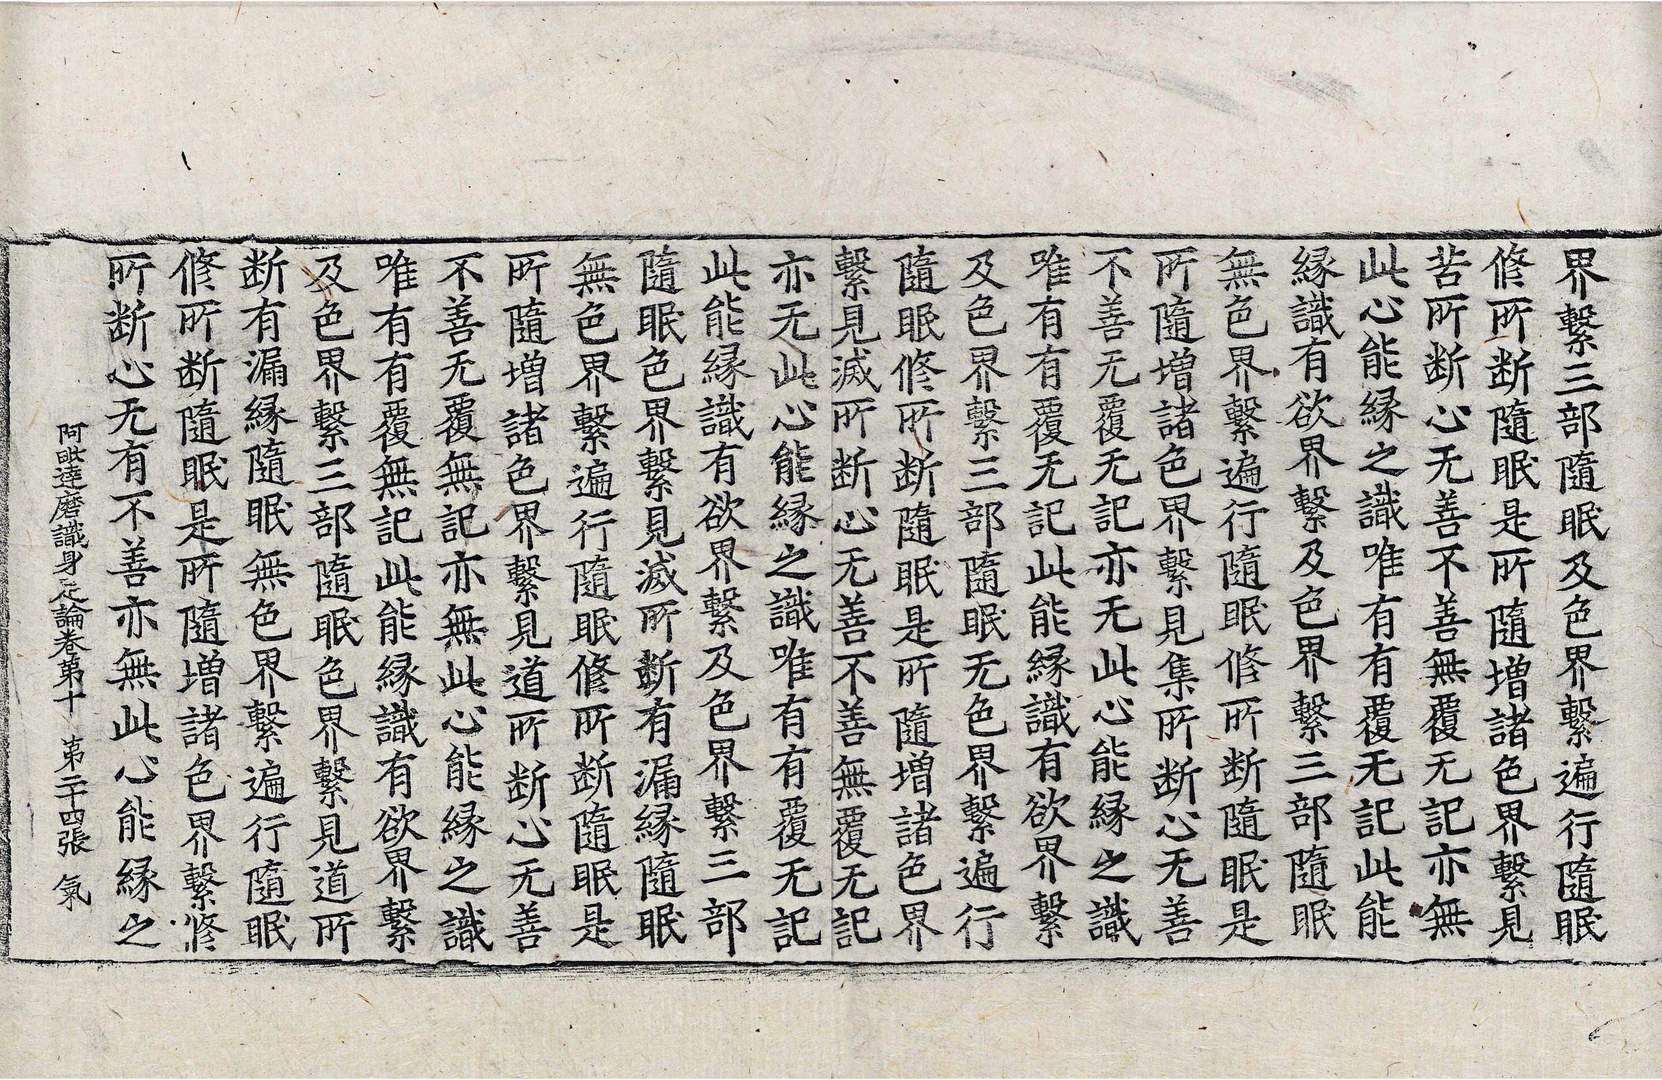 界繫三部隨眠及色界繫遍行隨眠
修所斷隨眠是所隨增諸色界繫見
苦所断心无善不善無覆无記亦無
此心能縁之識唯有有覆无記此能
縁識有欲界繫及色界繫三部隨眠
無色界繫遍行隨眠修所断隨眠是
所隨增諸色界繫見集所断心无善
不善无覆无記亦无此心能縁之識
唯有有覆无記此能縁識有欲界繫
及色界繫三部隨眠无色界繫遍行
隨眠修所断隨眠是所隨增諸色界
繫見滅所断心无善不善無覆无記
亦无此心能縁之識唯有有覆无記
此能縁識有欲界繫及色界繫三部
隨眠色界繫見滅所断有漏縁隨眠
無色界繫遍行隨眠修所断隨眠是
所隨增諸色界繫見道所断心无善
不善无覆無記亦無此心能縁之識
唯有有覆無記此能縁識有欲界繫
及色界繫三部隨眠色界繫見道所
断有漏縁隨眠無色界繫遍行隨眠
修所断隨眠是所隨增諸色界繫修
所断心无有不善亦無此心能縁之
阿毗達磨識身足論卷第十 第二十四張 氣